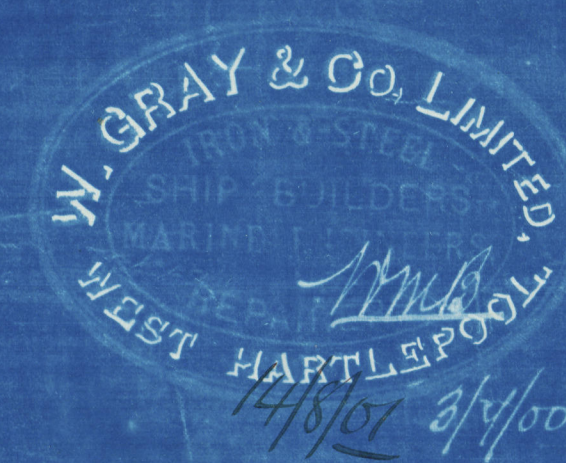 W. GRAY & Co, LIMITED,
IRON & STEEL
SHIP BUILDERS
MARINE
REPAIR
WEST HARTLEPOOL
14/8/01 3/4/00